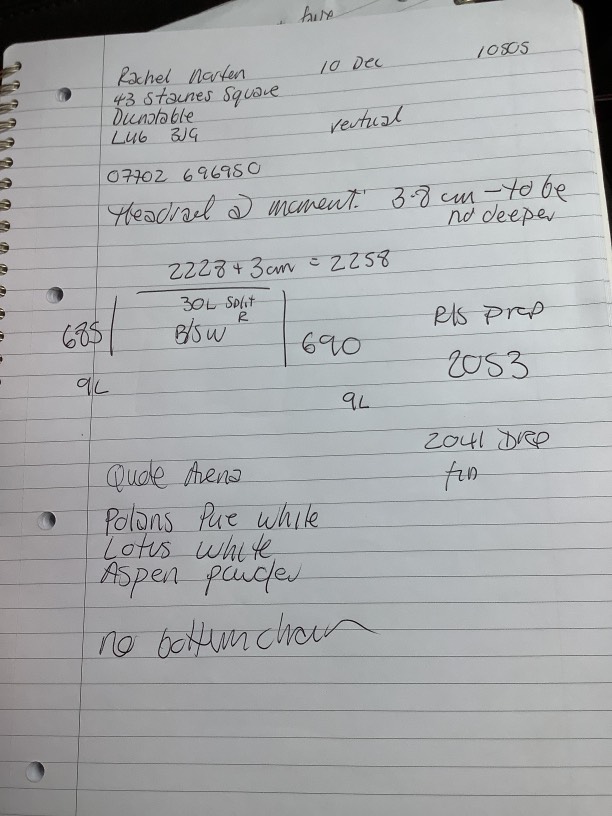 Rachel Marten 10 Dec 10505
43 Staines Square
Dunstable
LU6 3JG vertical
07702 696950
Headrail @ moment: 3.8 cm - to be
no deeper
2228 + 3cm = 2258
30L Split
R
685 B/SW 690
R/S Drop
2053
9L 9L
2041 Drop
fin
Quote Arena
Polaris Pure white
Lotus white
Aspen powder
no bottom chain